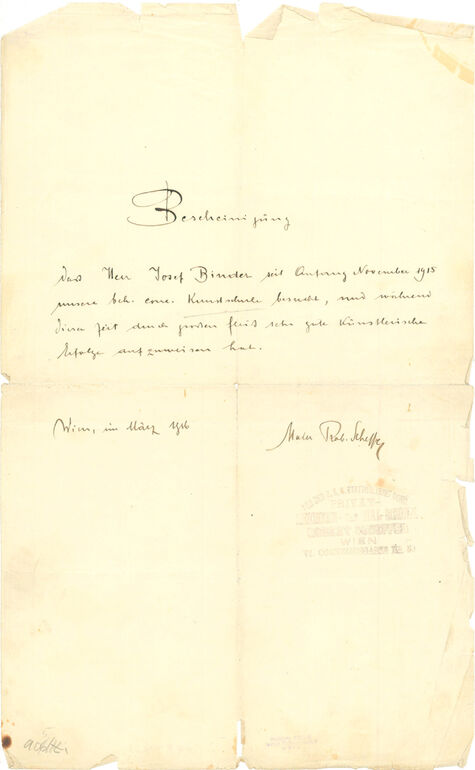 Bescheinigung
dass Herr Josef Binder seit Anfang November 1915
unsere beh. conc. Kunstschule besucht, und während
dieser Zeit durch großen Fleiß sehr gute künstlerische
Erfolge aufzuweisen hat.
Wien, im März 1916
Maler Rob. Scheffer
WIEN